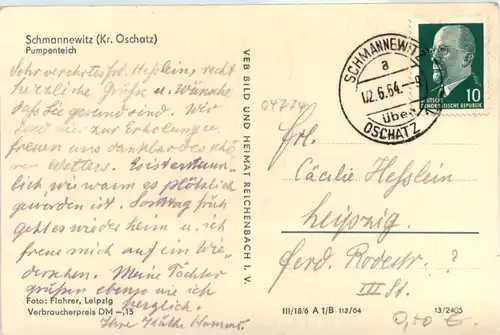 Schmannewitz (Kr. Oschatz)
Pumpenteich
Sehr verehrtes Frl. Heßlein, recht
herzliche Grüße u. Wünsche
daß Sie gesund sind. Wir
sind hier zur Erholung u.
freuen uns dankbar des schö
nen Wetters. Es ist erstaun-
lich wie warm es plötzlich
geworden ist. Sonntag früh
geht es wieder heim u. ich
freue mich auf ein Wie-
dersehen. Meine Töchter
grüßen ebenso wie ich
herzlich.
Ihre Käthe
Foto: Flohrer, Leipzig
Verbraucherpreis DM -,15
VEB BILD UND HEIMAT REICHENBACH I. V.
SCHMANNEWITZ
a
02.6.64.-
über
OSCHATZ
10
DEUTSCHE
DEMOKRATISCHE REPUBLIK
Frl.
Cäcilie Heßlein
Leipzig
Ferd. Rodestr. ?
III St.
III/18/6 A 1/B 113/64
13/2405
0,50 €